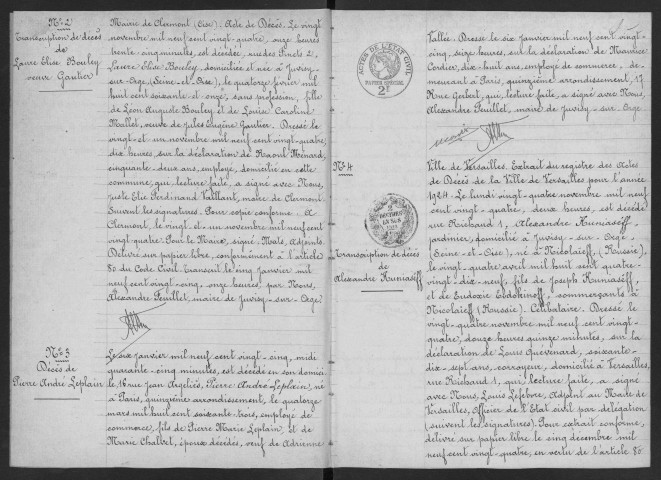 N° 2
Transcription de décès
de
Laure Elise Bouley
veuve Gautier
Mairie de Clermont (Oise) : Acte de Décès. Le vingt
novembre mil neuf cent vingt-quatre, onze heures
trente-cinq minutes, est décédée, rue des Fincts 2,
Laure Elise Bouley, domiciliée et née à Juvisy-
sur-Orge (Seine-et-Oise), le quatorze février mil
huit cent soixante et onze, sans profession, fille
de Léon Auguste Bouley et de Louise Caroline
Mallet, veuve de Jules Eugène Gautier. Dressé le
vingt-et un novembre mil neuf cent vingt-quatre,
dix heures, sur la déclaration de Raoul Ménard,
cinquante-deux ans, employé, domicilié en cette
commune, qui lecture faite, a signé avec Nous,
Juste Elie Ferdinand Vaillant, maire de Clermont.
Suivent les signatures. Pour copie conforme. A
Clermont, le vingt-et un novembre mil neuf cent
vingt-quatre. Pour le Maire, signé : Adjoint.
Délivré sur papier libre, conformément à l'article
80 du Code Civil. Transcrit le cinq janvier mil
neuf cent vingt-cinq, onze heures, par Nous,
Alexandre Feuillet, maire de Juvisy-sur-Orge.
N° 3
Décès de
Pierre André Leplain
Le six janvier mil neuf cent vingt-cinq, midi
quarante-cinq minutes, est décédé en son domici
le 16 rue Jean Argeliès, Pierre André Leplain, né
à Paris, quinzième arrondissement, le quatorze
mars mil huit cent soixante-trois, employé de
commerce, fils de Pierre Marie Leplain et de
Marie Chalvet, époux décédés, veuf de Adrienne
Vallée. Dressé le six janvier mil neuf cent vingt-
cinq, seize heures, sur la déclaration de Maurice
Cordier, dix-huit ans, employé de commerce, de-
meurant à Paris, quinzième arrondissement, 17
Rue Gerbert, qui, lecture faite, a signé avec Nous,
Alexandre Feuillet, maire de Juvisy-sur-Orge.
ACTES DE L'ETAT CIVIL
PAPIER SPECIAL
2f
N° 4
Transcription de décès
de
Alexandre Huniaséff
Ville de Versailles. Extrait du registre des Actes
de Décès de la Ville de Versailles pour l'année
1924. Le lundi vingt-quatre novembre mil neuf
cent vingt-quatre, deux heures, est décédé
rue Richaud 1, Alexandre Huniaséff,
jardinier, domicilié à Juvisy-sur-Orge,
(Seine-et-Oise), né à Nicolaieff, (Russie),
le vingt-quatre avril mil huit cent quatre-
vingt-dix-neuf, fils de Joseph Huniaséff,
et de Eudoxie Eudokinoff, commerçants à
Nicolaieff (Russie). Célibataire. Dressé le
vingt-quatre novembre mil neuf cent vingt-
quatre, douze heures quinze minutes, sur la
déclaration de Louis Quévenard, soixante-
dix-sept ans, corroyeur, domicilié à Versailles,
rue Richaud 1, qui lecture faite, a signé
avec Nous, Louis Lefebvre, Adjoint au Maire de
Versailles, Officier de l'Etat civil par délégation
(suivent les signatures). Pour extrait conforme,
délivré sur papier libre le cinq décembre mil
neuf cent vingt-quatre, en vertu de l'article 80